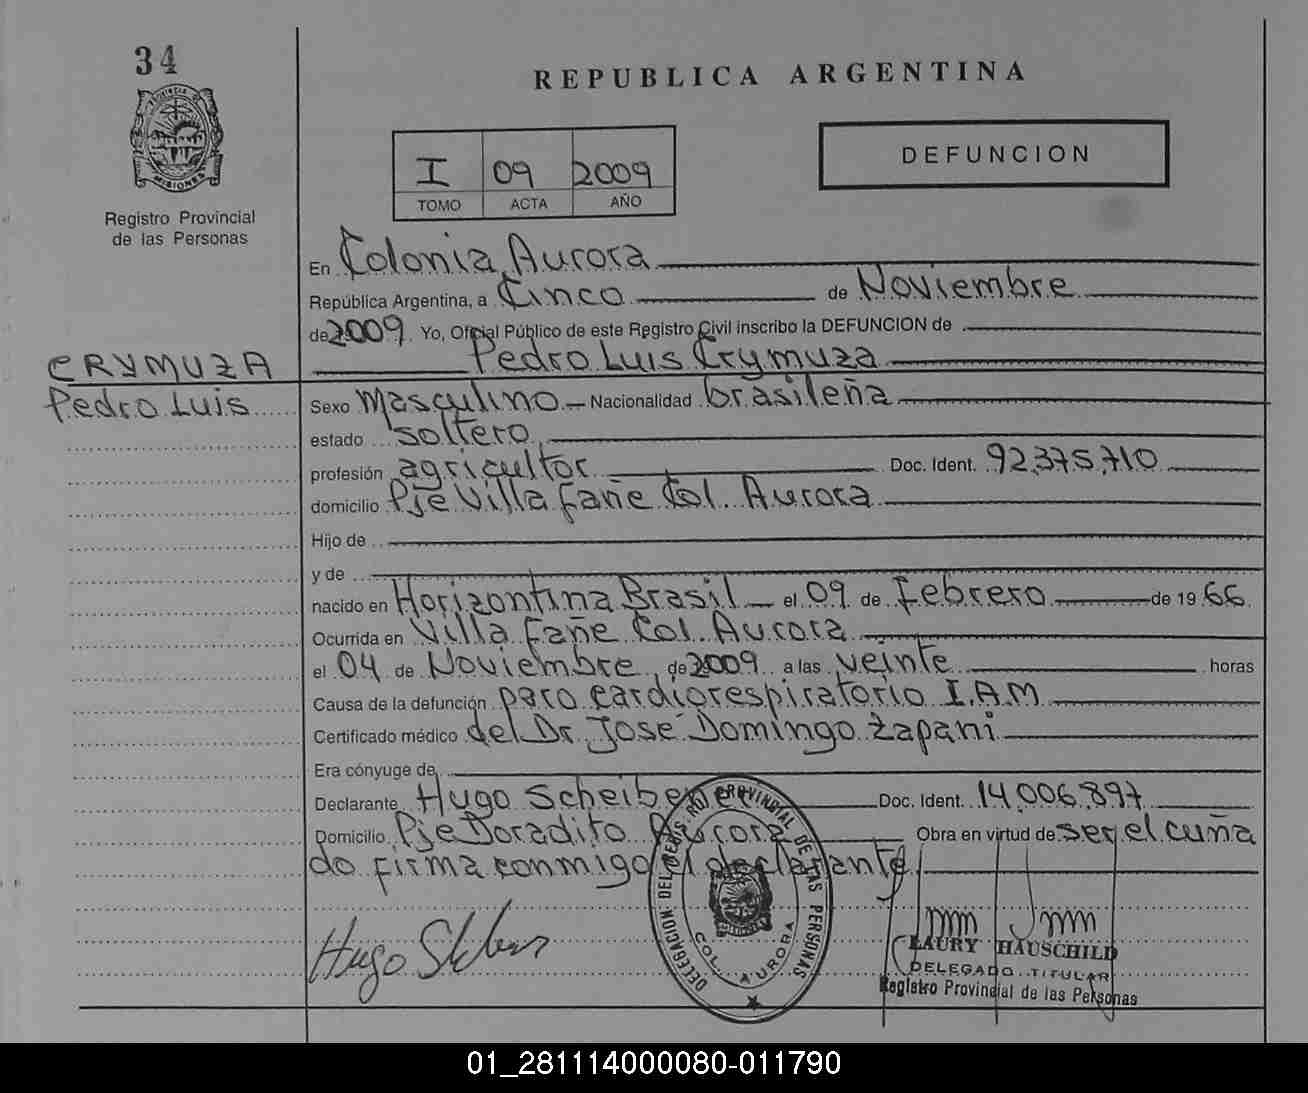 34
PROVINCIA DE
MISIONES
Registro Provincial
de las Personas
REPUBLICA ARGENTINA
I 09 2009
TOMO ACTA AÑO
DEFUNCION
En Colonia Aurora
República Argentina, a Cinco de Noviembre
de 2009. Yo, Oficial Público de este Registro Civil inscribo la DEFUNCION de
Pedro Luis Crymuza
CRYMUZA
Pedro Luis
Sexo Masculino Nacionalidad brasileña
estado soltero
profesión agricultor Doc. Ident. 92.375.710
domicilio Pje Villa Fañe Col. Aurora
Hijo de
y de
nacido en Horizontina Brasil el 09 de Febrero de 1966
Ocurrida en Villa Fañe Col. Aurora
el 04 de Noviembre de 2009 a las veinte horas
Causa de la defunción paro cardiorespiratorio I.A.M
Certificado médico del Dr. José Domingo Zapani
Era cónyuge de
Declarante Hugo Scheibener Doc. Ident. 14.006.897
Domicilio Pje Doradito Aurora Obra en virtud de ser el cuña
do firma conmigo el declarante
DELEGACION DEL REGIS.RO PROVINCIAL DE LAS PERSONAS
COL. AURORA
Hugo
LAURY HAUSCHILD
DELEGADO TITULAR
Registro Provincial de las Personas
01_281114000080-011790